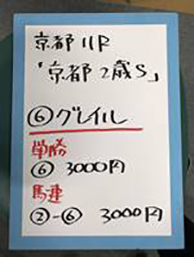 京都11R
「京都2歳S」
⑥グレイル
単勝
⑥ 3000円
馬連
②-⑥ 3000円